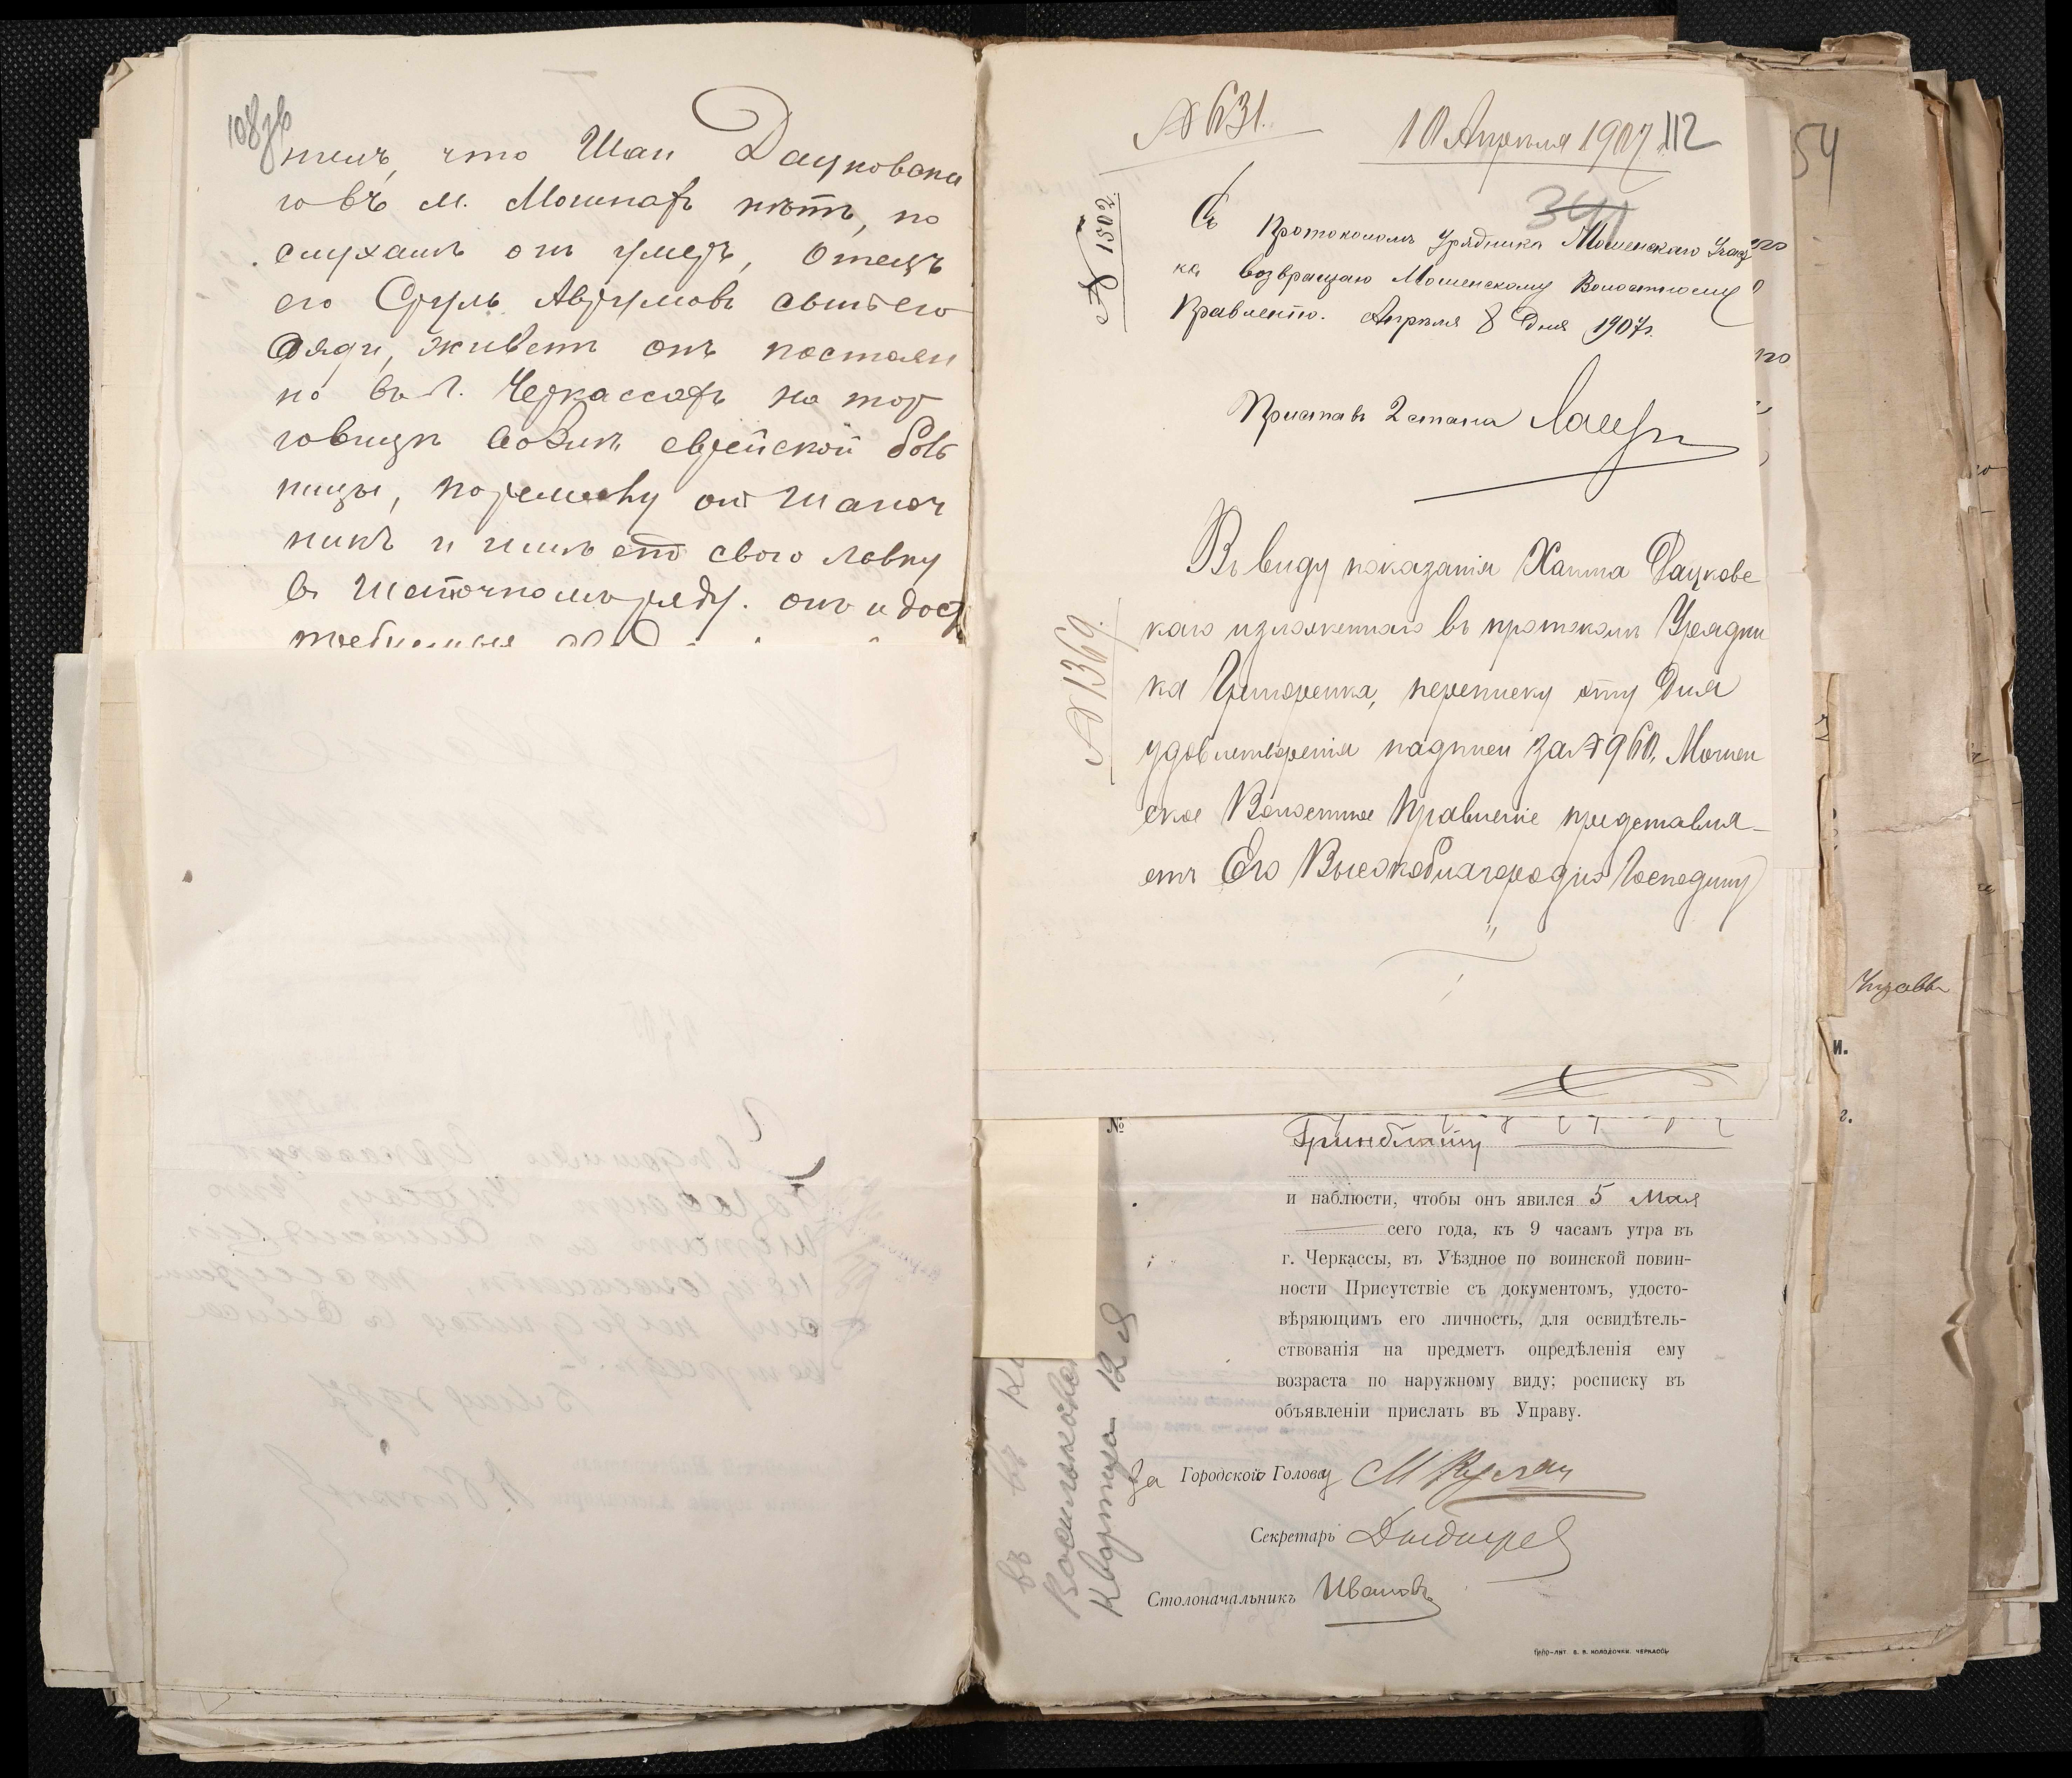 108 об
что Шаи Дацковска
го въ м. Мошнахъ нѣтъ, по
слухамъ онъ умеръ, Отецъ
его Сруль Аврумовъ сынъ его
дяди, живетъ онъ постоян
но въ г. Черкассахъ на тор
говицѣ вовлизи еврейской боль
ницы, по ремеслу онъ шапоч
никъ и имѣетъ свою лавку
въ Шапочномъ ряду. онъ и дост
№ 631.
10 Апрѣля 1907
112
341
№ 1502
Съ протоколомъ Урядника Мошенскаго Участ
ка возвращаю Мошенскому Волостному
Правленію. Апрѣля 8 дня 1907г.
Приставъ 2 стана
№ 1369
Въ виду показанія Хаима Дацковс
каго изложеннаго въ протоколѣ Урядни
ка Григоренка, переписку эту для
удовлетворенія надписи за № 960, Мошен
ское Волостное Правленіе представля-
етъ Его Высокоблагородію Господину
№
Гринблату
и наблюсти, чтобы онъ явился 5 Мая
сего года, къ 9 часамъ утра въ
г. Черкассы, въ Уѣздное по воинской повин-
ности Присутствіе съ документомъ, удосто-
вѣряющимъ его личность, для освидѣтель-
ствованія на предметъ опредѣленія ему
возраста по наружному виду; росписку въ
объявленіи прислать въ Управу.
За Городской Голова
Секретарь
Столоначальникъ Ивановъ
Васильковс
Квартира 12
54
и.
г.